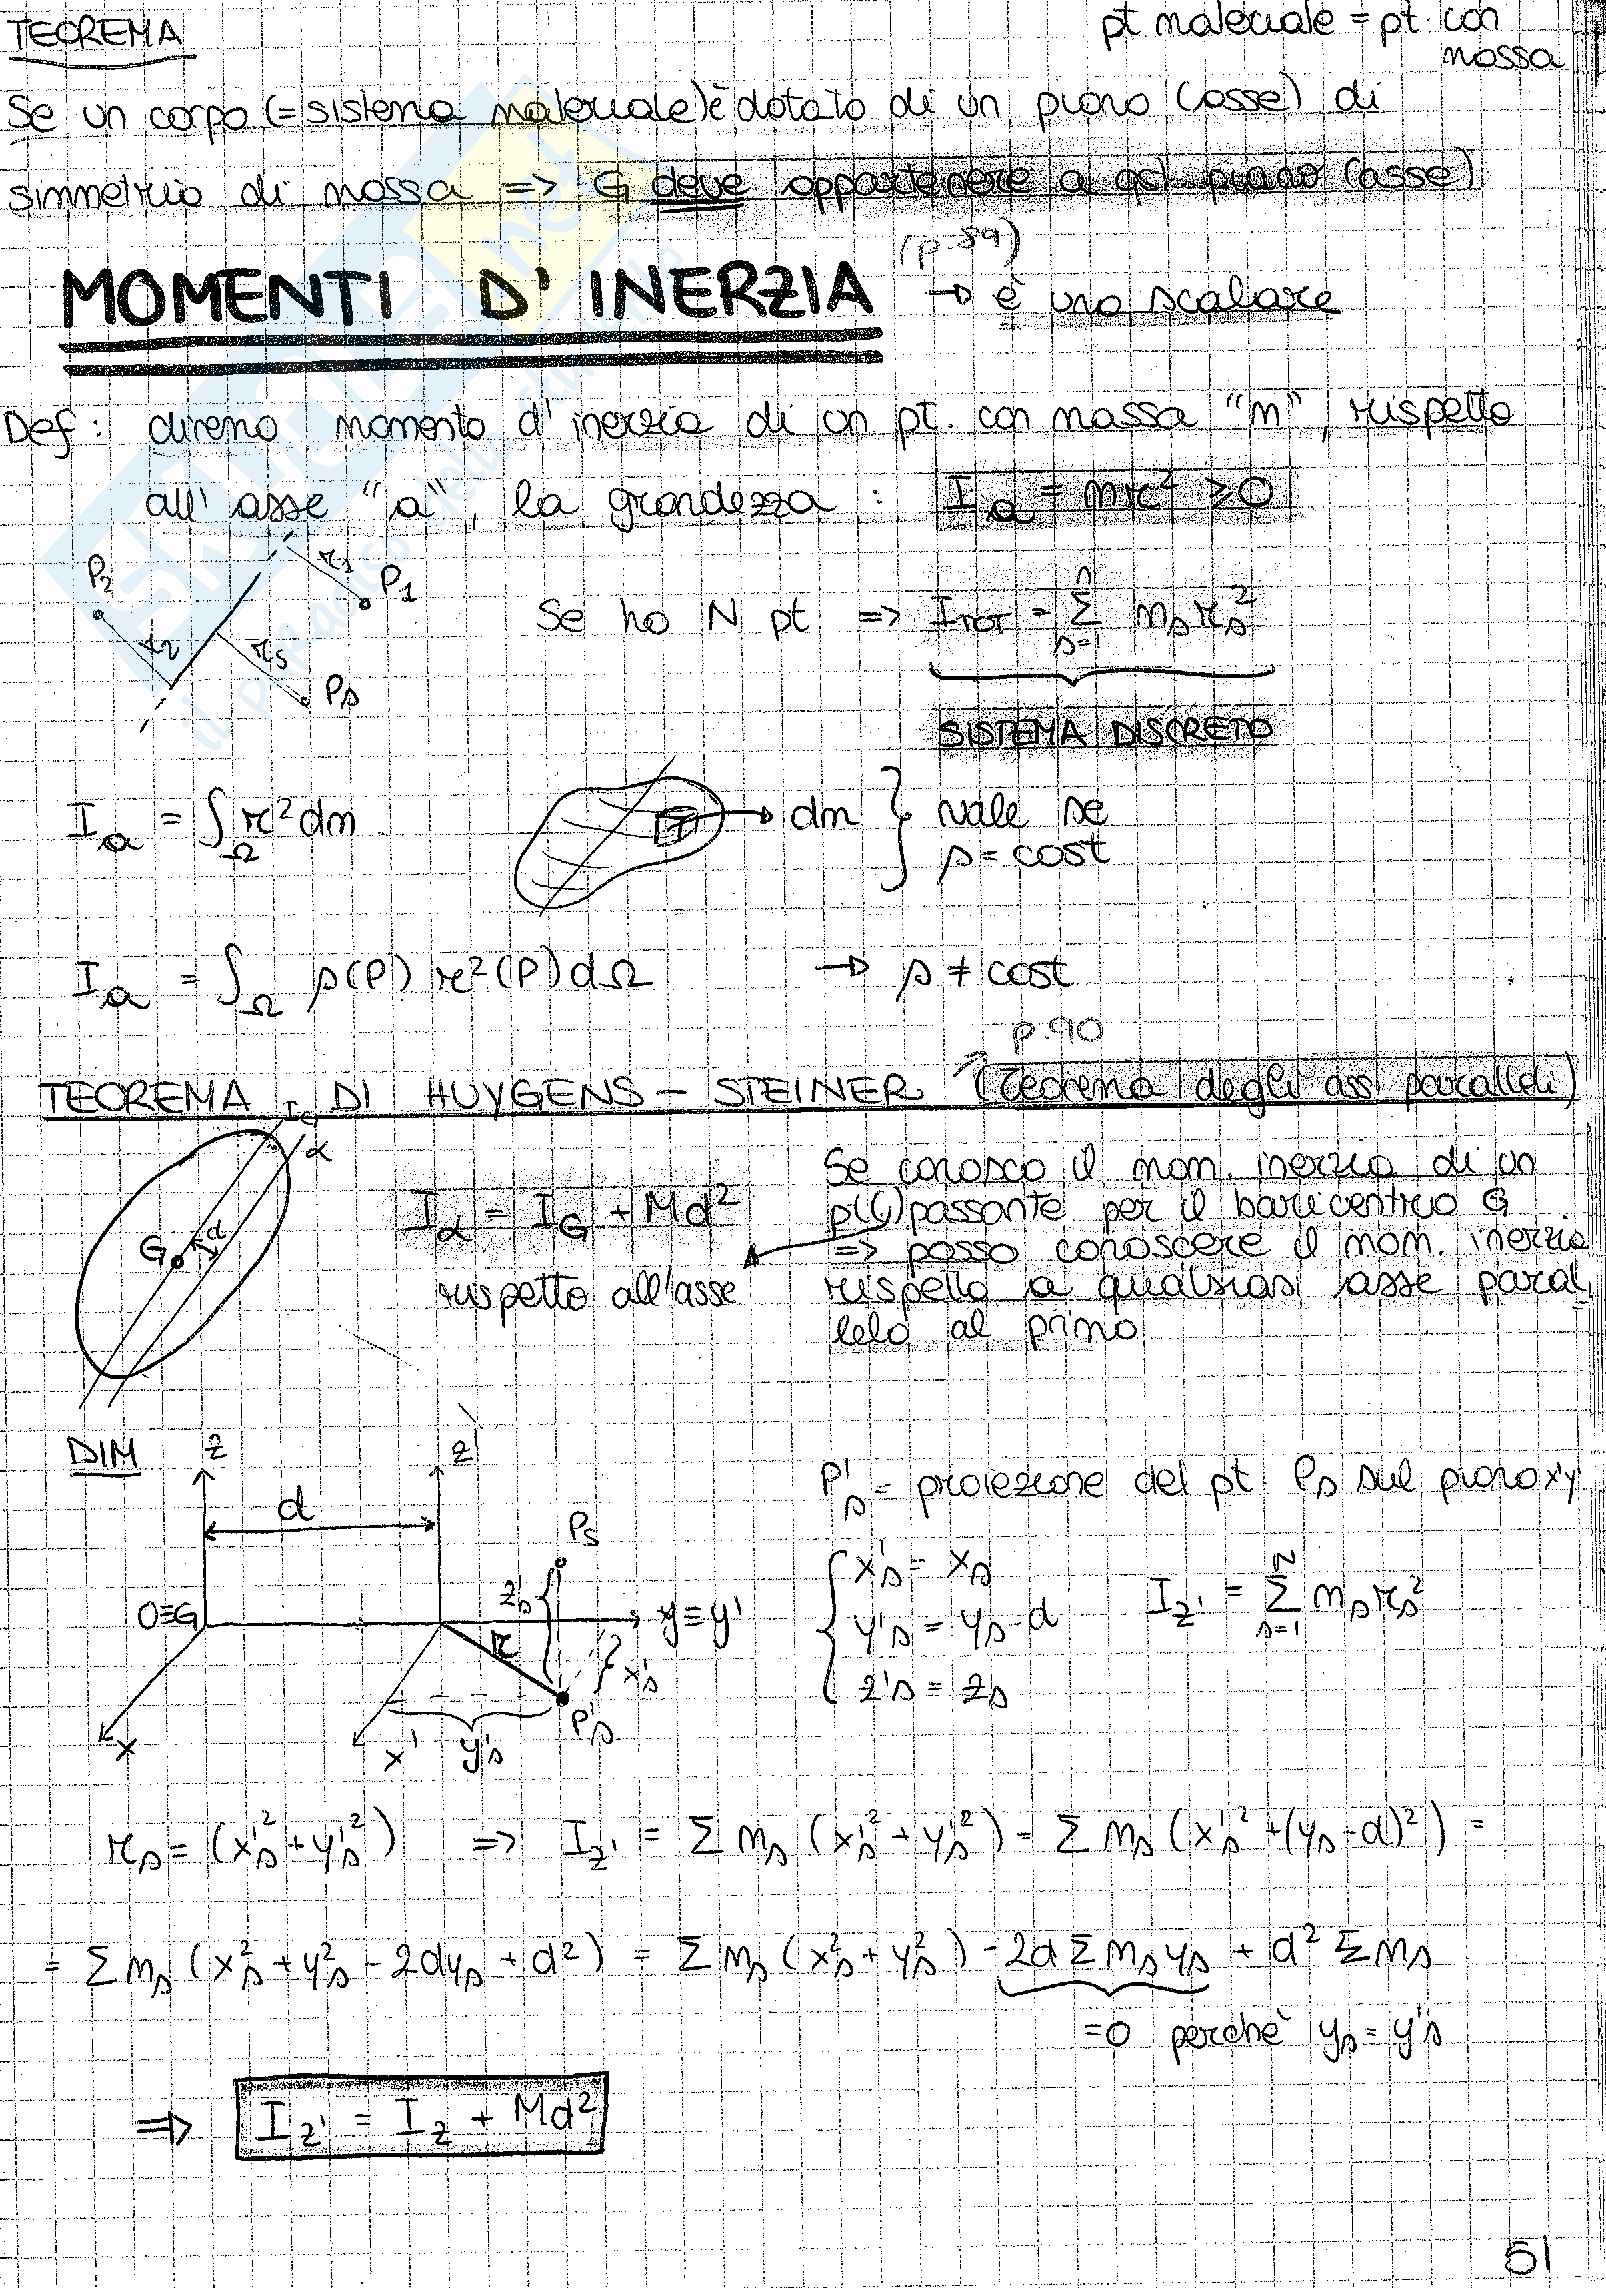 TEOREMA
pt materiale = pt. con
massa
Se un corpo (= sistema materiale) è dotato di un piano (asse) di
simmetria di massa => G deve appartenere a qst piano (asse)
(p. 89)
MOMENTI D' INERZIA → è uno scalare
Def: diremo momento d'inerzia di un pt. con massa "m", rispetto
all' asse "a", la grandezza: Ia = mr² ≥ 0
P2 r1 P1
r2 rs Ps
Se ho N pt => ITOT = Σ ms rs²
n
s=1
SISTEMA DISCRETO
Ia = ∫Ω r² dm
dm } vale se
ρ = cost
Ia = ∫Ω ρ(P) r²(P) dΩ → ρ ≠ cost
p. 90
TEOREMA DI HUYGENS - STEINER (teorema degli assi paralleli)
IG
α
G d
Iα = IG + Md²
rispetto all'asse
Se conosco il mom. inerzia di un
passante per il baricentro G
=> posso conoscere il mom. inerzia
rispetto a qualsiasi asse paral
lelo al primo
DIM z z'
d
Ps
O≡G z's y≡y'
r x's
x x' y's P's
P's = proiezione del pt Ps sul piano xy
{ x's = xs
y's = ys - d
z's = zs
Iz' = Σ ms rs²
N
s=1
rs = (x's² + y's²) => Iz' = Σ ms (x's² + y's²) = Σ ms (x's² + (ys - d)²) =
= Σ ms (xs² + ys² - 2dys + d²) = Σ ms (xs² + ys²) - 2d Σ ms ys + d² Σ ms
=0 perchè ys = y's
=> Iz' = Iz + Md²
51